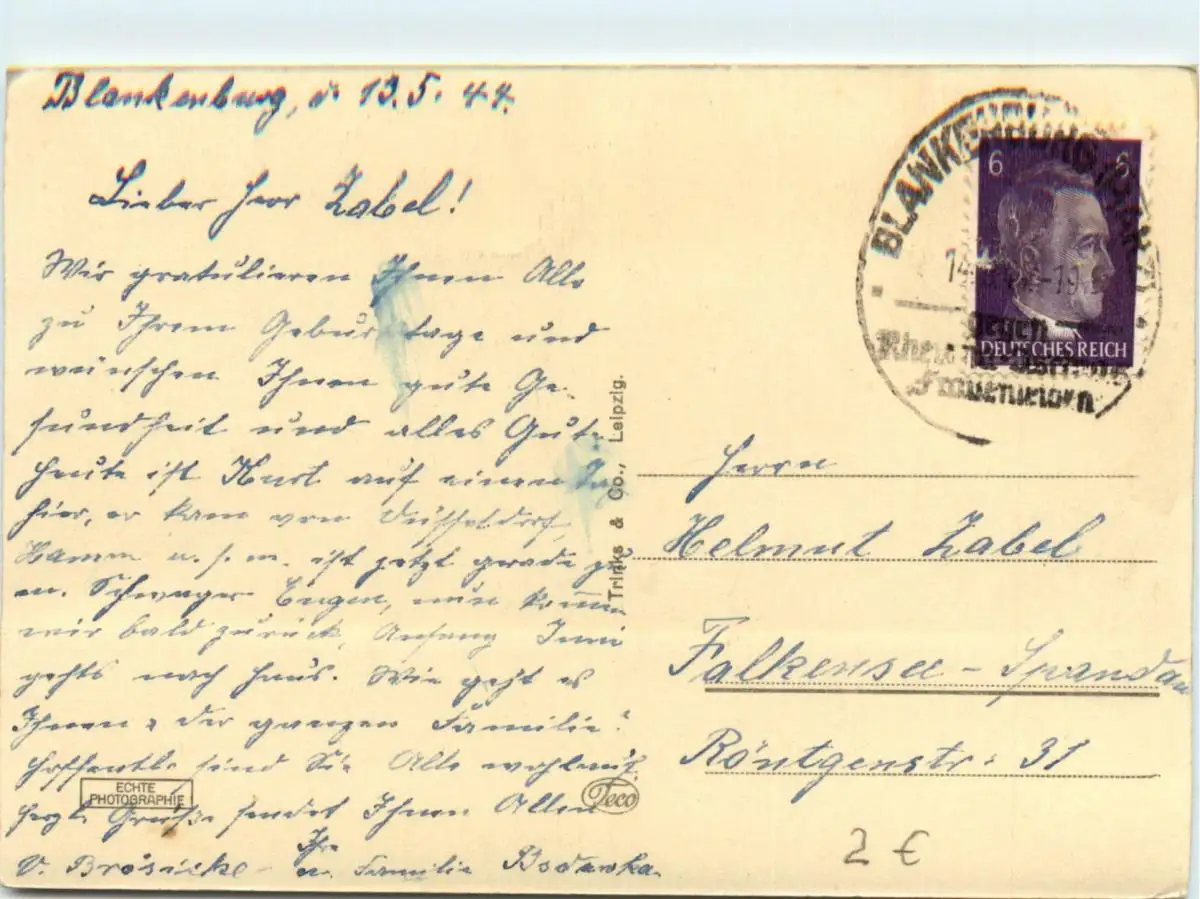 Blankenburg, d. 13.5.44.
Lieber Herr Zabel!
Wir gratulieren Ihnen Alle
zu Ihrem Geburtstage und
wünschen Ihnen gute Ge-
sundheit und alles Gute.
Heute ist Kurt auf einen Tag
hier, er kam von Düsseldorf,
Hamm u.s.w. ist jetzt gerade zu
m. Schwager Eugen, nun kommen
wir bald zurück, Anfang Juni
gehts nach Haus. Wie geht es
Ihnen u. der ganzen Familie?
Hoffentl. sind Sie Alle wohlauf
herzl. Grüße sendet Ihnen Allen
Ihre
V. Brösicke u. Familie
ECHTE
PHOTOGRAPHIE
Teco
Trinks & Co., Leipzig.
BLANKENBURG (HARZ)
6 6
DEUTSCHES REICH
gegen
Frauenleiden
Herrn
Helmut Zabel
Falkensee - Spandau
Röntgenstr. 31
2 €